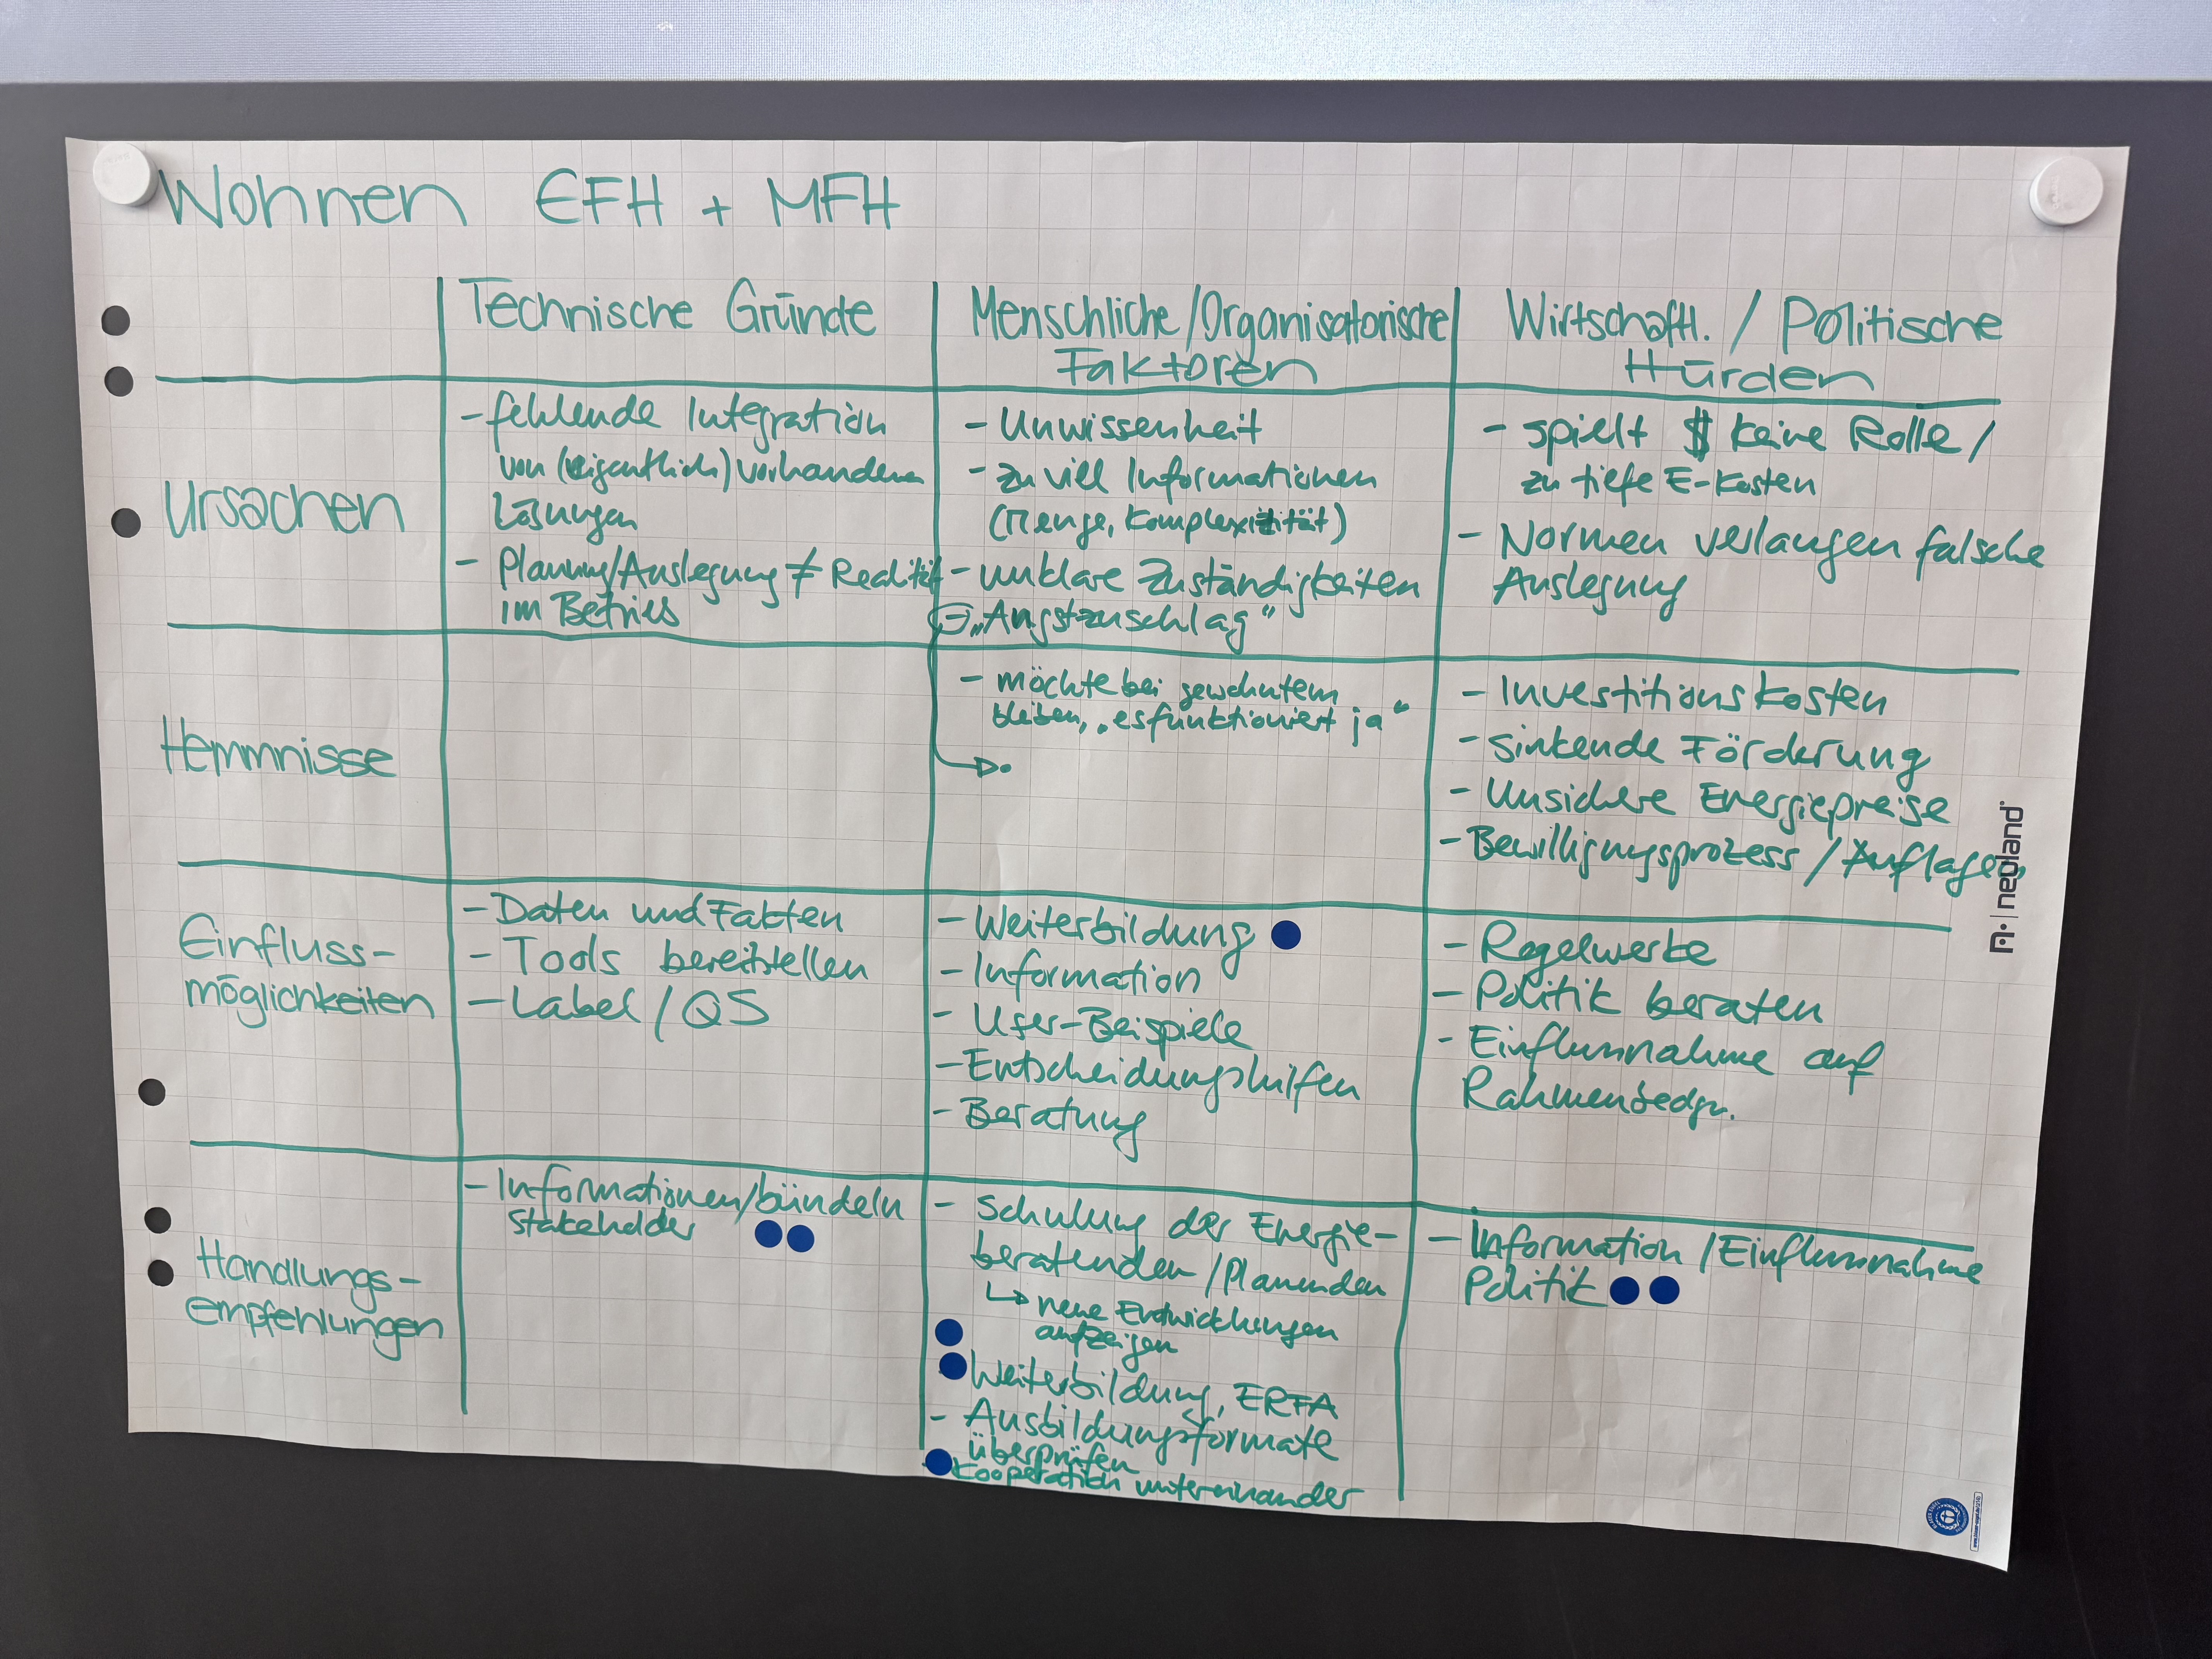 Wohnen EFH + MFH
Technische Gründe
Menschliche/Organisatorische
Faktoren
Wirtschaftl. / Politische
Hürden
Ursachen
- fehlende Integration
von (eigentlich) vorhandenen
Lösungen
- Planung/Auslegung ≠ Realität
im Betrieb
- Unwissenheit
- zu viel Informationen
(Menge, Komplexität)
- unklare Zuständigkeiten
„Angstzuschlag"
- spielt $ keine Rolle /
zu tiefe E-Kosten
- Normen verlangen falsche
Auslegung
Hemmnisse
- möchte bei gewohntem
bleiben, „es funktioniert ja"
- Investitionskosten
- sinkende Förderung
- Unsichere Energiepreise
- Bewilligungsprozess / Auflagen
neuland
Einfluss-
möglichkeiten
- Daten und Fakten
- Tools bereitstellen
- Label / QS
- Weiterbildung
- Information
- User-Beispiele
- Entscheidungshilfen
- Beratung
- Regelwerke
- Politik beraten
- Einflussnahme auf
Rahmenbedgn.
Handlungs-
empfehlungen
- Informationen/bündeln
Stakeholder
- Schulung der Energie-
beratenden / Planenden
↳ neue Entwicklungen
aufzeigen
Weiterbildung, ERFA
- Ausbildungsformate
überprüfen
Kooperation untereinander
- Information / Einflussnahme
Politik